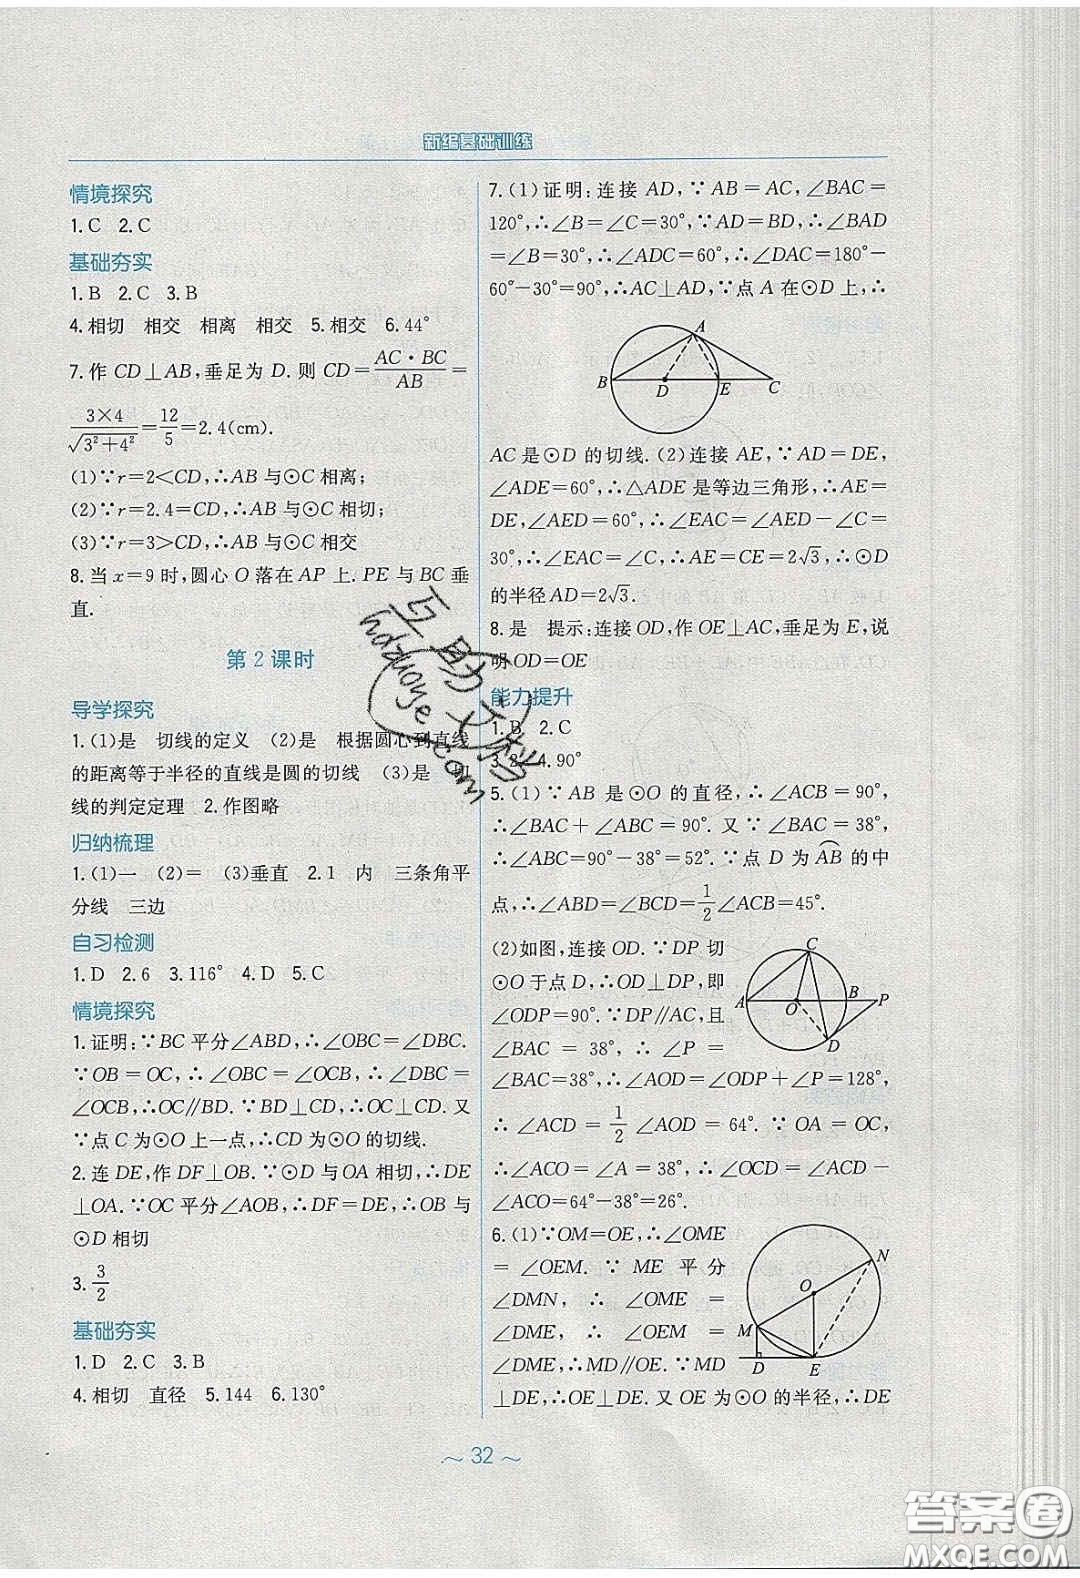 新编基础训练
情境探究
1.C 2.C
基础夯实
1.B 2.C 3.B
4.相切 相交 相离 相交 5.相交 6.44°
7.作CD⊥AB,垂足为D.则CD=AC·BC/AB=
3×4/√(3²+4²)=12/5=2.4(cm).
(1)∵r=2<CD,∴AB与⊙C相离;
(2)∵r=2.4=CD,∴AB与⊙C相切;
(3)∵r=3>CD,∴AB与⊙C相交
8.当x=9时,圆心O落在AP上.PE与BC垂
直.
第2课时
导学探究
1.(1)是 切线的定义 (2)是 根据圆心到直线
的距离等于半径的直线是圆的切线 (3)是 切
线的判定定理 2.作图略
归纳梳理
1.(1)一 (2)= (3)垂直 2.1 内 三条角平
分线 三边
自习检测
1.D 2.6 3.116° 4.D 5.C
情境探究
1.证明:∵BC平分∠ABD,∴∠OBC=∠DBC.
∵OB=OC,∴∠OBC=∠OCB,∴∠DBC=
∠OCB,∴OC∥BD.∵BD⊥CD,∴OC⊥CD.又
∵点C为⊙O上一点,∴CD为⊙O的切线.
2.连DE,作DF⊥OB.∵⊙D与OA相切,∴DE
⊥OA.∵OC平分∠AOB,∴DF=DE,∴OB与
⊙D相切
3.3/2
基础夯实
1.D 2.C 3.B
4.相切 直径 5.144 6.130°
7.(1)证明:连接AD,∵AB=AC,∠BAC=
120°,∴∠B=∠C=30°,∵AD=BD,∴∠BAD
=∠B=30°,∴∠ADC=60°,∴∠DAC=180°-
60°-30°=90°,∴AC⊥AD,∵点A在⊙D上,∴
A
B
D
E
C
AC是⊙D的切线.(2)连接AE,∵AD=DE,
∠ADE=60°,∴△ADE是等边三角形,∴AE=
DE,∠AED=60°,∴∠EAC=∠AED-∠C=
30°,∴∠EAC=∠C,∴AE=CE=2√3,∴⊙D
的半径AD=2√3.
8.是 提示:连接OD,作OE⊥AC,垂足为E,说
明OD=OE
能力提升
1.B 2.C
4.90°
5.(1)∵AB是⊙O的直径,∴∠ACB=90°,
∴∠BAC+∠ABC=90°.又∵∠BAC=38°,
∴∠ABC=90°-38°=52°.∵点D为AB的中
点,∴∠ABD=∠BCD=1/2∠ACB=45°.
(2)如图,连接OD.∵DP切
⊙O于点D,∴OD⊥DP,即
∠ODP=90°.∵DP∥AC,且
∠BAC=38°,∴∠P=
∠BAC=38°,∴∠AOD=∠ODP+∠P=128°,
C
A
O
B
P
D
∴∠ACD=1/2∠AOD=64°.∵OA=OC,
∴∠ACO=∠A=38°,∴∠OCD=∠ACD-
∠ACO=64°-38°=26°.
6.(1)∵OM=OE,∴∠OME
=∠OEM.∵ME平分
∠DMN,∴∠OME=
∠DME,∴∠OEM=
∠DME,∴MD∥OE.∵MD
⊥DE,∴OE⊥DE.又OE为⊙O的半径,∴DE
N
O
M
D
E
～32～
互助文档
hdzuoye
.com
答案圈
MXQE.COM